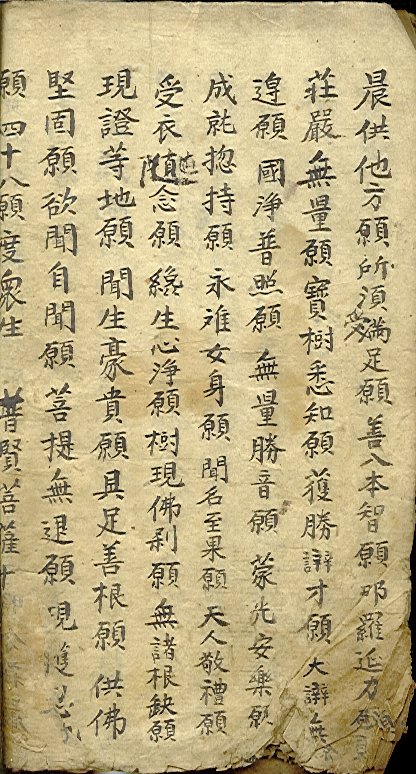 晨供他方願所須滿足願善入本智願那羅延力願
莊嚴無量願寶樹悉知願獲勝辯才願大辯無
邉願 國淨普照願 無量勝音願 蒙光安樂願
成就揔持願 永难女身願 聞名至果願 天人敬禮願
受衣隨念願 纔生心淨願 樹現佛刹願 無諸根缺願
現證等地願 聞生豪貴願 具足善根願 供佛
堅固願欲聞自聞願 菩提無退願 現獲忍
願 四十八願度衆生 普賢菩薩十